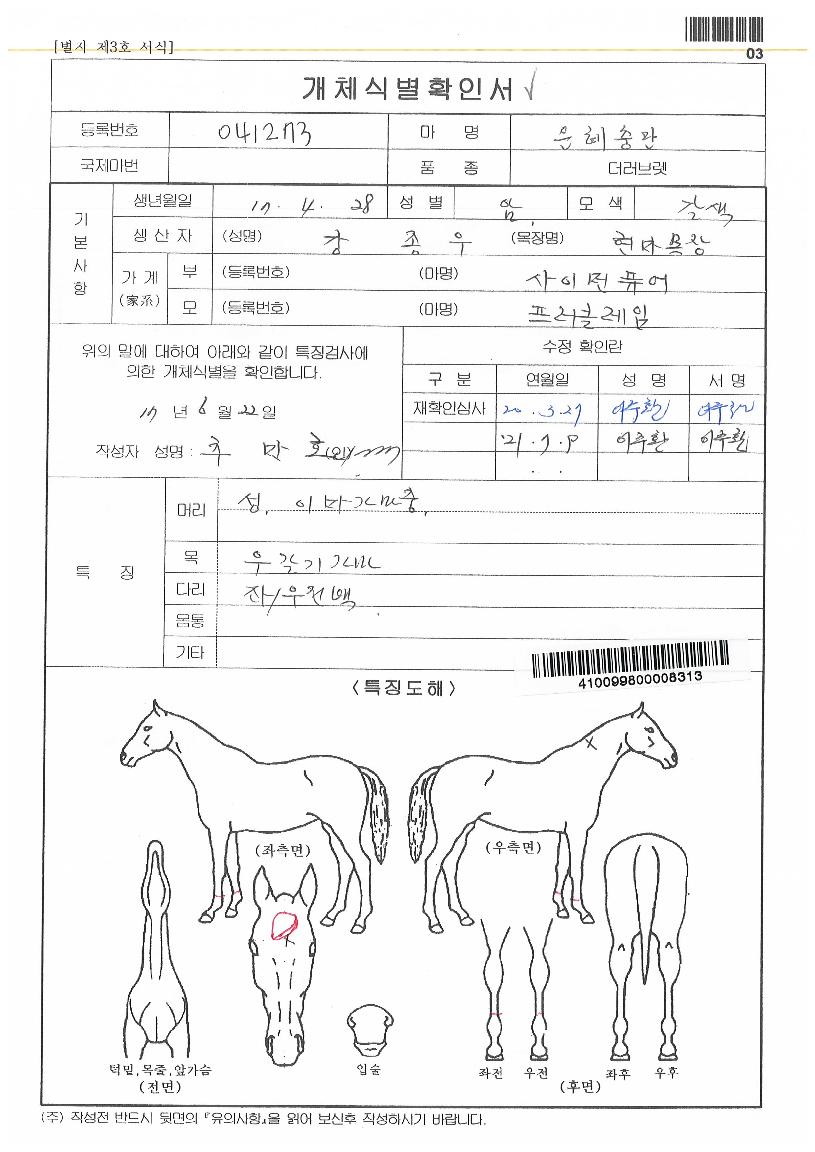 [별시 제3호 서식]
03
개체식별확인서 √
등록번호 0412173 마 명 은혜충만
국제마번 품 종 더러브렛
기본사항
생년월일 17. 4. 28 성 별 암 모 색 갈색
생 산 자 (성명) 강 종 우 (목장명)
가 계 (家系) 부 (등록번호) (마명) 사이먼퓨어
모 (등록번호) (마명) 프러클레임
위의 말에 대하여 아래와 같이 특징검사에
의한 개체식별을 확인합니다.
17 년 6 월 22 일
작성자 성명 : 추 만 호 (인)
수정 확인란
구 분 연월일 성 명 서 명
재확인심사 20 . 3 . 27 이주환 이주환
21 . 7 . 9 이주환 이주환
. .
특 징
머리 성,
목
다리 좌/우전백
몸통
기타
410099800008313
<특징도해>
(좌측면)
(우측면)
턱밑,목줄,앞가슴
(전면)
입술
좌전 우전
좌후 우후
(후면)
(주) 작성전 반드시 뒷면의 『유의사항』을 읽어 보신후 작성하시기 바랍니다.